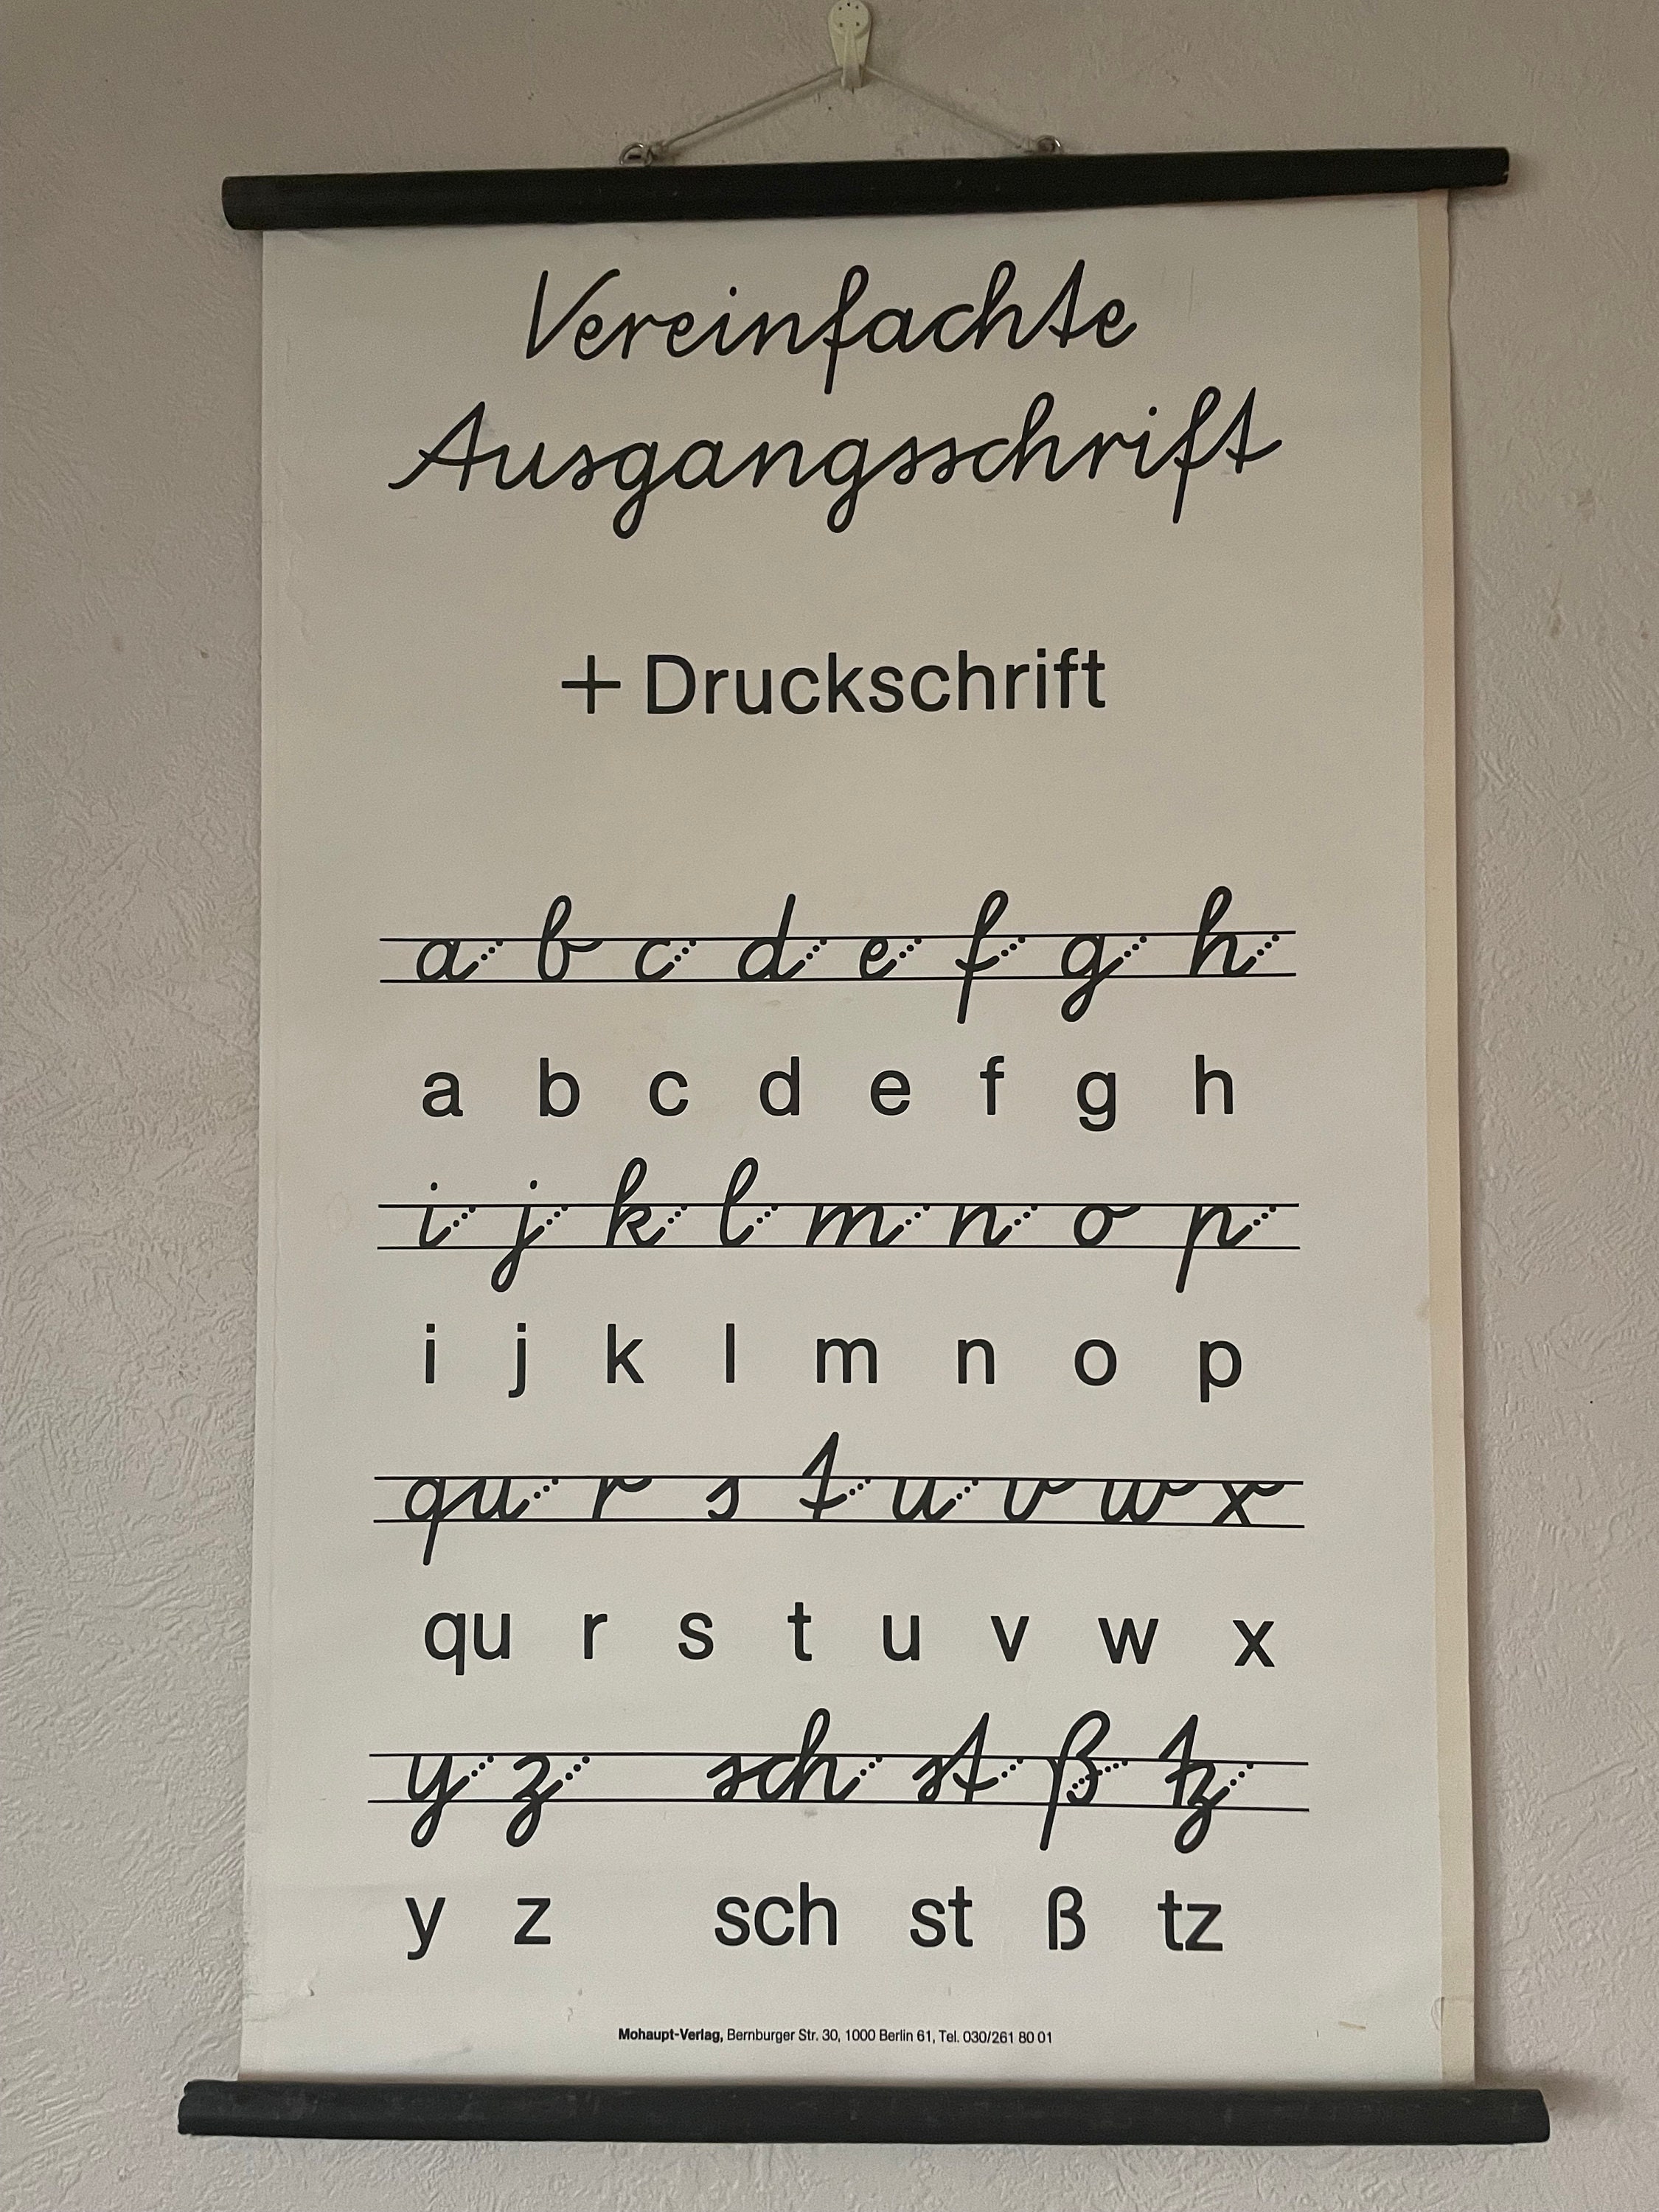 Vereinfachte
Ausgangsschrift
+ Druckschrift
a b c d e f g h
a b c d e f g h
i j k l m n o p
i j k l m n o p
qu r s t u v w x
qu r s t u v w x
y z sch st ß tz
y z sch st ß tz
Mohaupt-Verlag, Bernburger Str. 30, 1000 Berlin 61, Tel. 030/261 80 01